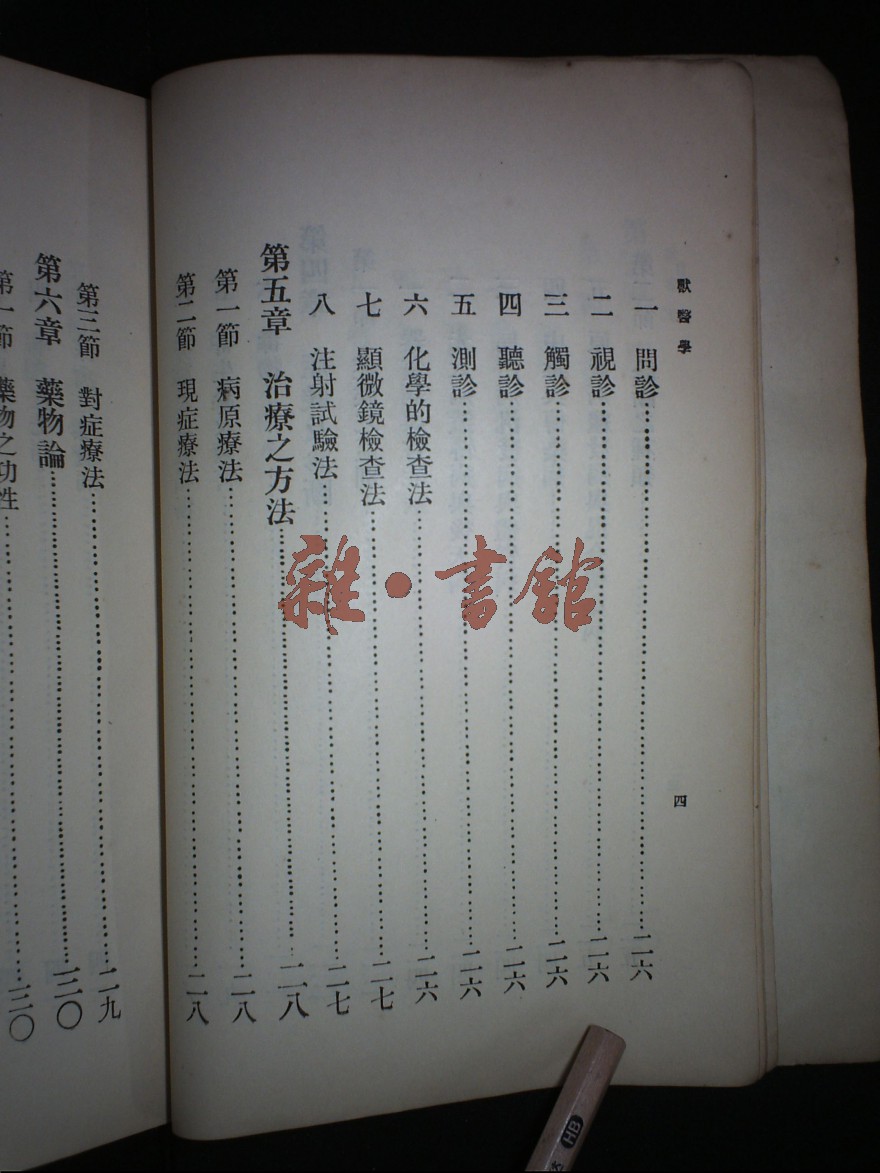 獸醫學
四
一 問診……二六
二 視診……二六
三 觸診……二六
四 聽診……二六
五 測診……二六
六 化學的檢查法……二六
七 顯微鏡檢查法……二七
八 注射試驗法……二七
第五章 治療之方法……二八
第一節 病原療法……二八
第二節 現症療法……二八
第三節 對症療法……二九
第六章 藥物論……三〇
第一節 藥物之功性……三〇
雜·書館
HB